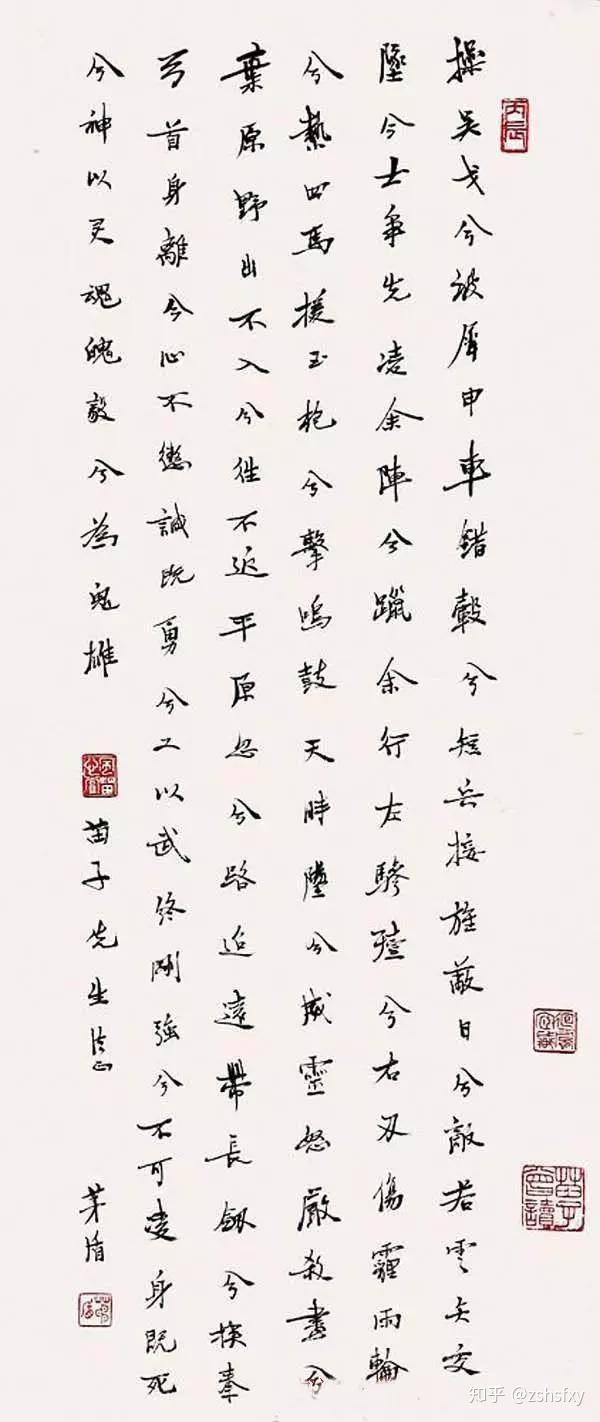 丙辰
操吴戈兮被犀甲車錯轂兮短兵接旌蔽日兮敵若雲矢交
墜兮士爭先凌余陣兮躐余行左驂殪兮右刃傷霾兩輪
兮縶四馬援玉枹兮擊鳴鼓天時墜兮威靈怒嚴殺盡兮
棄原野出不入兮往不返平原忽兮路迢遠帶長劍兮挾秦
弓首身離兮心不懲誠既勇兮又以武終剛強兮不可凌身既死
兮神以灵魂魄毅兮為鬼雄
苗子先生法正
茅盾
苗子曾讀
知乎 @zshsfxy